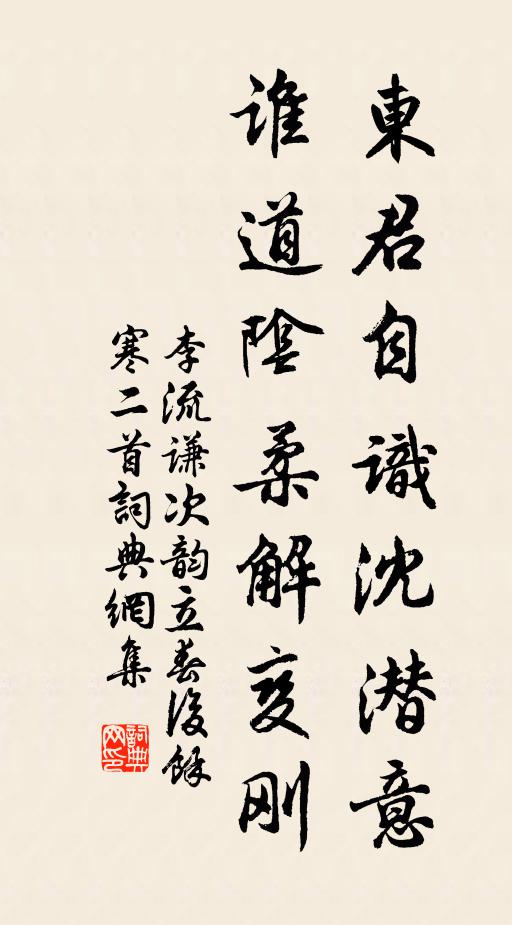 東君自識沈潜意
誰道陰柔解变刚
李流谦次韵立春後餘
寒二首詞典網集
詞典
网印